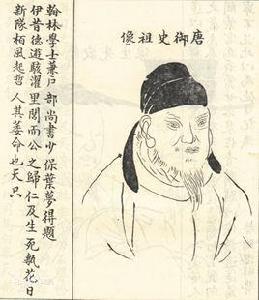 唐御史祖像
翰林學士兼戶部尚書少保葉夢得題
伊昔德遊駿濯里閈而公之歸仁及生死執花日
新隊栢風起哲人其萎命也天只